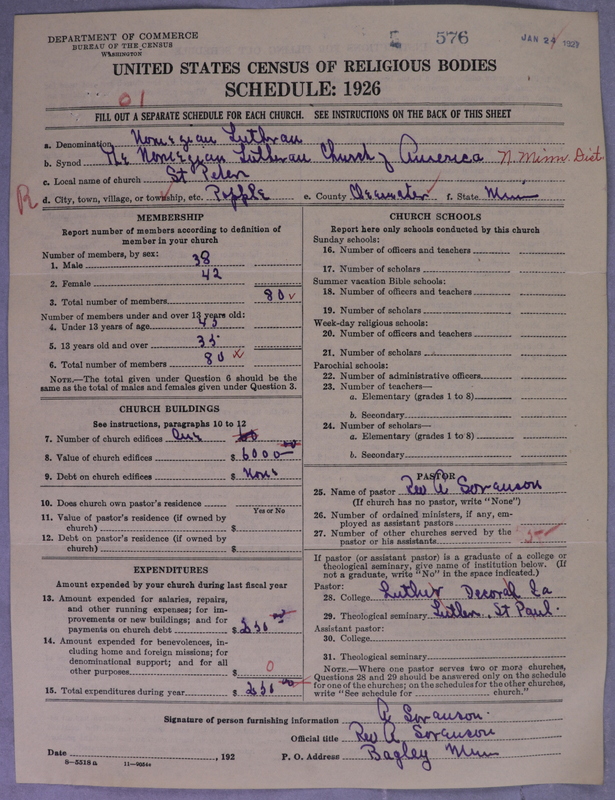 DEPARTMENT OF COMMERCE
BUREAU OF THE CENSUS
WASHINGTON
576
JAN 24 1927
UNITED STATES CENSUS OF RELIGIOUS BODIES
SCHEDULE: 1926
01
FILL OUT A SEPARATE SCHEDULE FOR EACH CHURCH. SEE INSTRUCTIONS ON THE BACK OF THIS SHEET
a. Denomination Norwegian Lutheran
b. Synod The Norwegian Lutheran Church of America N. Minn. Dist
c. Local name of church St Peter
R d. City, town, village, or township, etc. Popple e. County Clearwater f. State Minn
MEMBERSHIP
Report number of members according to definition of member in your church
Number of members, by sex:
1. Male 38
2. Female 42
3. Total number of members 80
Number of members under and over 13 years old:
4. Under 13 years of age 45
5. 13 years old and over 35
6. Total number of members 80
NOTE.—The total given under Question 6 should be the
same as the total of males and females given under Question 3.
CHURCH BUILDINGS
See instructions, paragraphs 10 to 12
7. Number of church edifices One
8. Value of church edifices $ 6000
9. Debt on church edifices $ None
10. Does church own pastor's residence
Yes or No
11. Value of pastor's residence (if owned by
church) $
12. Debt on pastor's residence (if owned by
church) $
EXPENDITURES
Amount expended by your church during last fiscal year
13. Amount expended for salaries, repairs,
and other running expenses; for im-
provements or new buildings; and for
payments on church debt $ 250
14. Amount expended for benevolences, in-
cluding home and foreign missions; for
denominational support; and for all
other purposes $ 0
15. Total expenditures during year $ 250
CHURCH SCHOOLS
Report here only schools conducted by this church
Sunday schools:
16. Number of officers and teachers
17. Number of scholars
Summer vacation Bible schools:
18. Number of officers and teachers
19. Number of scholars
Week-day religious schools:
20. Number of officers and teachers
21. Number of scholars
Parochial schools:
22. Number of administrative officers
23. Number of teachers—
a. Elementary (grades 1 to 8)
b. Secondary
24. Number of scholars—
a. Elementary (grades 1 to 8)
b. Secondary
PASTOR
25. Name of pastor Rev A Soranson
(If church has no pastor, write "None")
26. Number of ordained ministers, if any, em-
ployed as assistant pastors
27. Number of other churches served by the
pastor or his assistants
If pastor (or assistant pastor) is a graduate of a college or
theological seminary, give name of institution below. (If
not a graduate, write "No" in the space indicated.)
Pastor:
28. College Luther Decorah Ia
29. Theological seminary Luther, St Paul.
Assistant pastor:
30. College
31. Theological seminary
NOTE.—Where one pastor serves two or more churches,
Questions 28 and 29 should be answered only on the schedule
for one of the churches; on the schedules for the other churches,
write "See schedule for church."
Signature of person furnishing information A Soranson
Official title Rev A. Soranson
Date , 192 P. O. Address Bagley Minn
8—5518a 11—9054